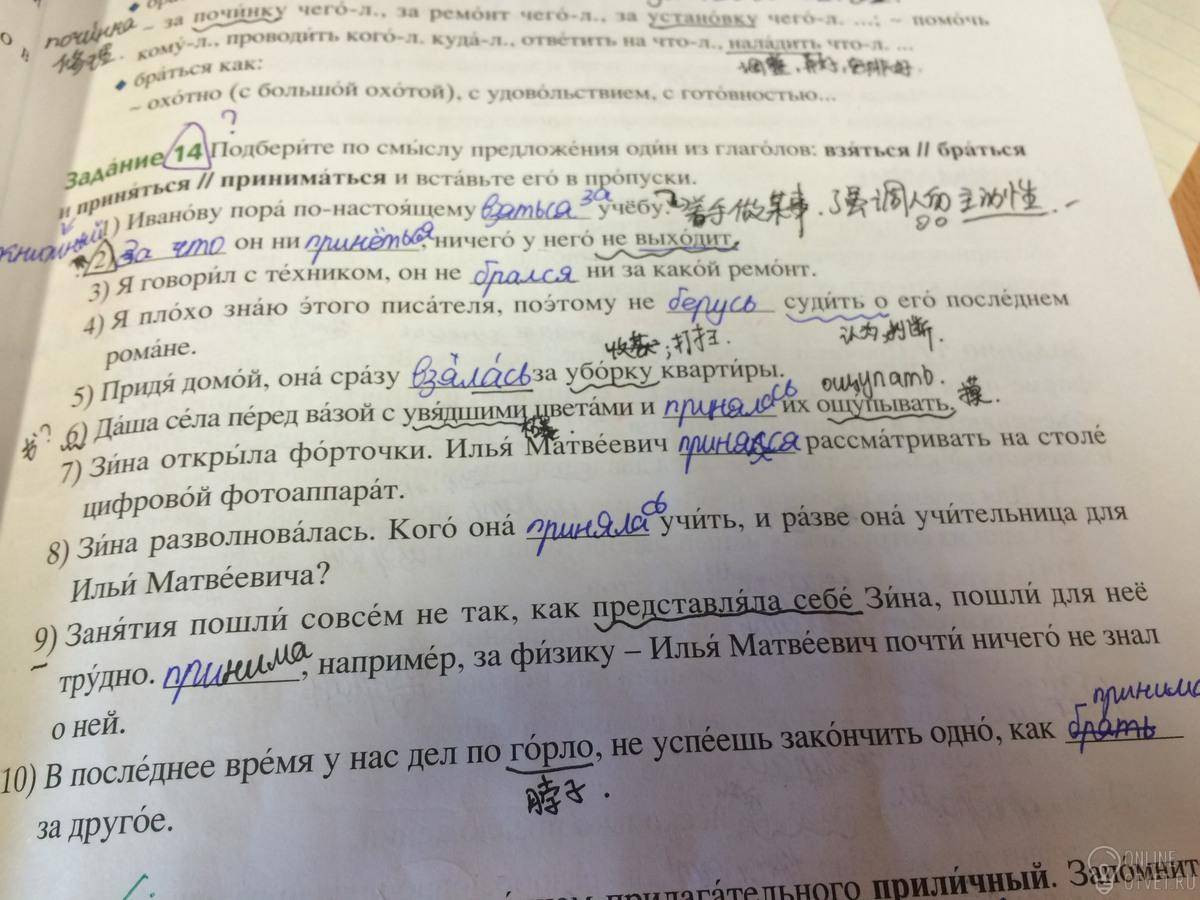 починка – за почи́нку чего́-л., за ремо́нт чего́-л., за устано́вку чего́-л. ...; ~ помо́чь
修理. кому́-л., проводи́ть кого́-л. куда́-л., отве́тить на что-л., нала́дить что-л. ...
◆ бра́ться как:
调整,
– охо́тно (с большо́й охо́той), с удово́льствием, с гото́вностью...
?
Зада́ние 14 Подбери́те по смы́слу предложе́ния оди́н из глаго́лов: взя́ться // бра́ться
и приня́ться // принима́ться и вста́вьте его́ в про́пуски.
1) Ивано́ву пора́ по-настоя́щему взяться за учёбу. 着手做某事. 强调人的主动性.
книжный 2) За что он ни примёться, ничего́ у него́ не выхо́дит.
3) Я говори́л с те́хником, он не брался ни за како́й ремо́нт.
4) Я пло́хо зна́ю э́того писа́теля, поэ́тому не берусь суди́ть о его́ после́днем
рома́не.
打扫. 认为, 判断.
5) Придя́ домо́й, она́ сра́зу взяла́сь за убо́рку кварти́ры.
ощупать.
6) Да́ша се́ла пе́ред ва́зой с увя́дшими цвета́ми и принялась их ощу́пывать. 摸.
7) Зи́на откры́ла фо́рточки. Илья́ Матве́евич принялся рассма́тривать на столе́
цифрово́й фотоаппара́т.
8) Зи́на разволнова́лась. Кого́ она́ принялась учи́ть, и ра́зве она́ учи́тельница для
Ильи́ Матве́евича?
9) Заня́тия пошли́ совсе́м не так, как представля́ла себе́ Зи́на, пошли́ для неё
тру́дно. принима, наприме́р, за фи́зику – Илья́ Матве́евич почти́ ничего́ не знал
о ней.
принима
10) В после́днее вре́мя у нас дел по го́рло, не успе́ешь зако́нчить одно́, как брать
脖子.
за друго́е.
прилага́тельного прили́чный. Запо́мнит
ONLINE
OTVET.RU